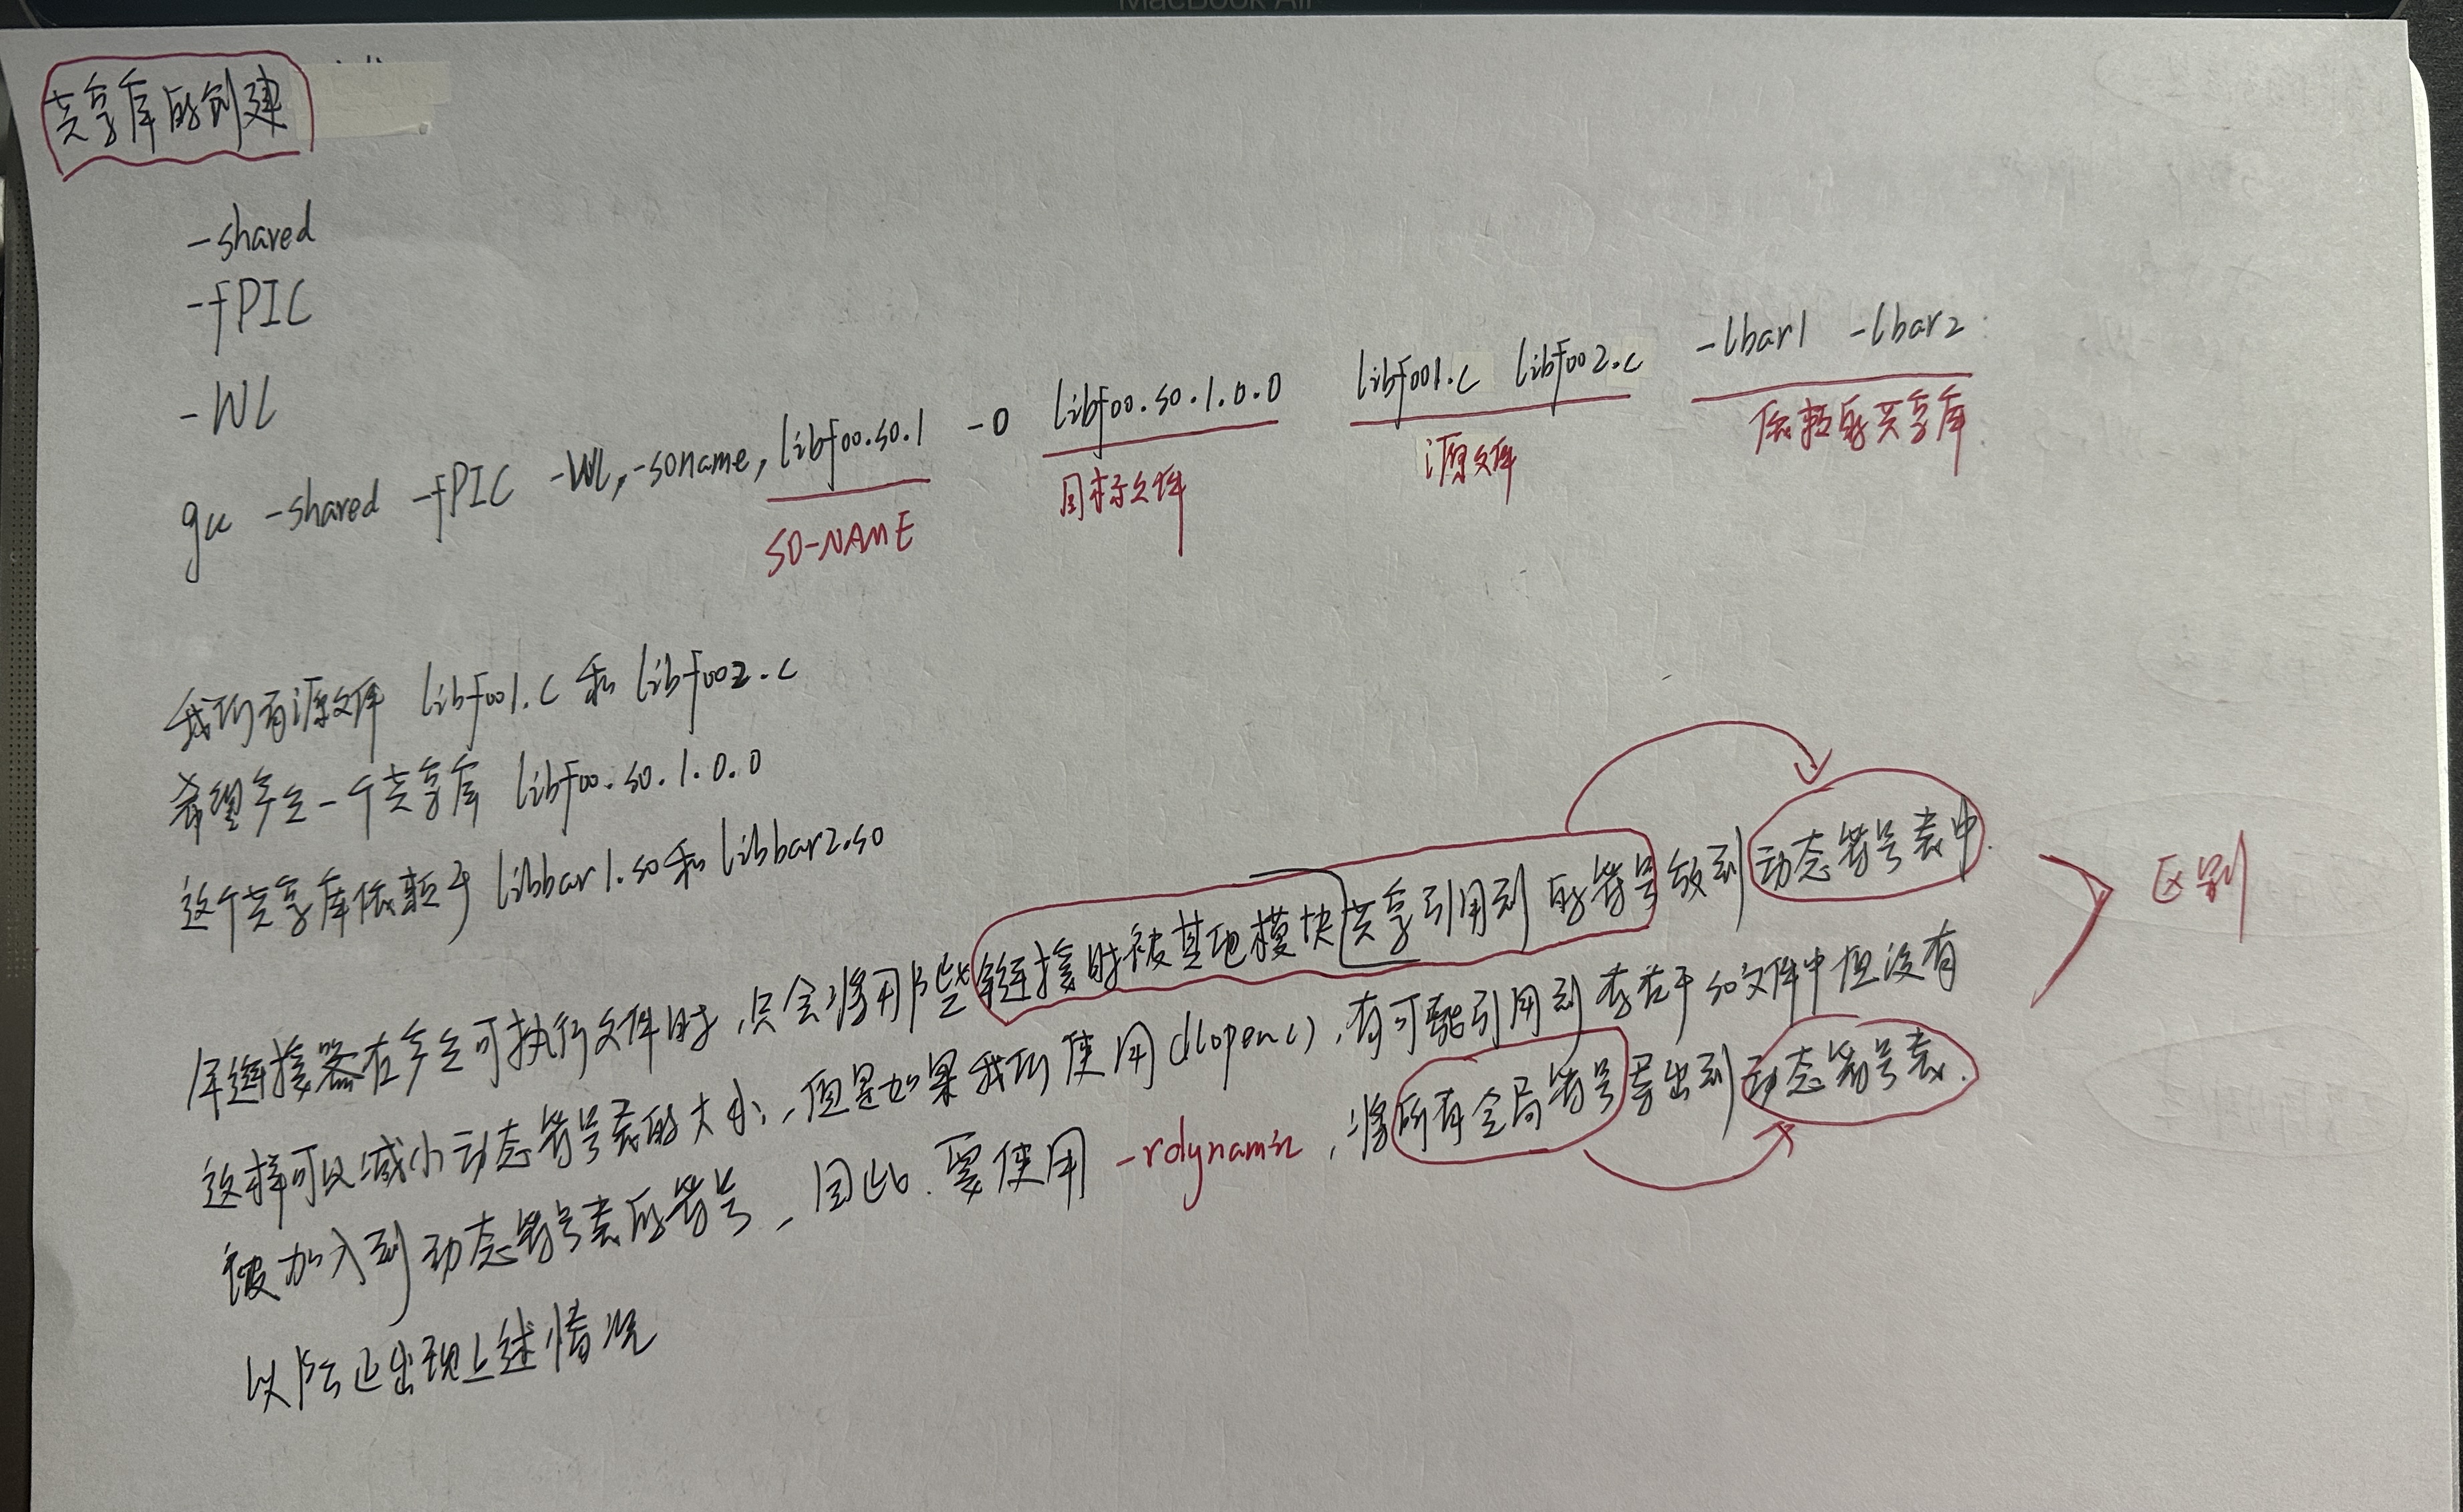 MacBook Air
共享库的创建
-shared
-fPIC
-Wl
gcc -shared -fPIC -Wl,-soname,libfoo.so.1 -o libfoo.so.1.0.0 libfoo1.c libfoo2.c -lbar1 -lbar2
SO-NAME 目标文件 源文件 依赖的共享库
我们有源文件 libfoo1.c 和 libfoo2.c
希望产生一个共享库 libfoo.so.1.0.0
这个共享库依赖于 libbar1.so和 libbar2.so
链接器在产生可执行文件时,只会将那些链接时被其他模块共享引用到的符号放到动态符号表中.
这样可以减小动态符号表的大小,但是如果我们使用dlopen(),有可能引用到存在于so文件中但没有
被加入到动态符号表的符号,因此,要使用 -rdynamic,将所有全局符号导出到动态符号表.
以防止出现上述情况
区别